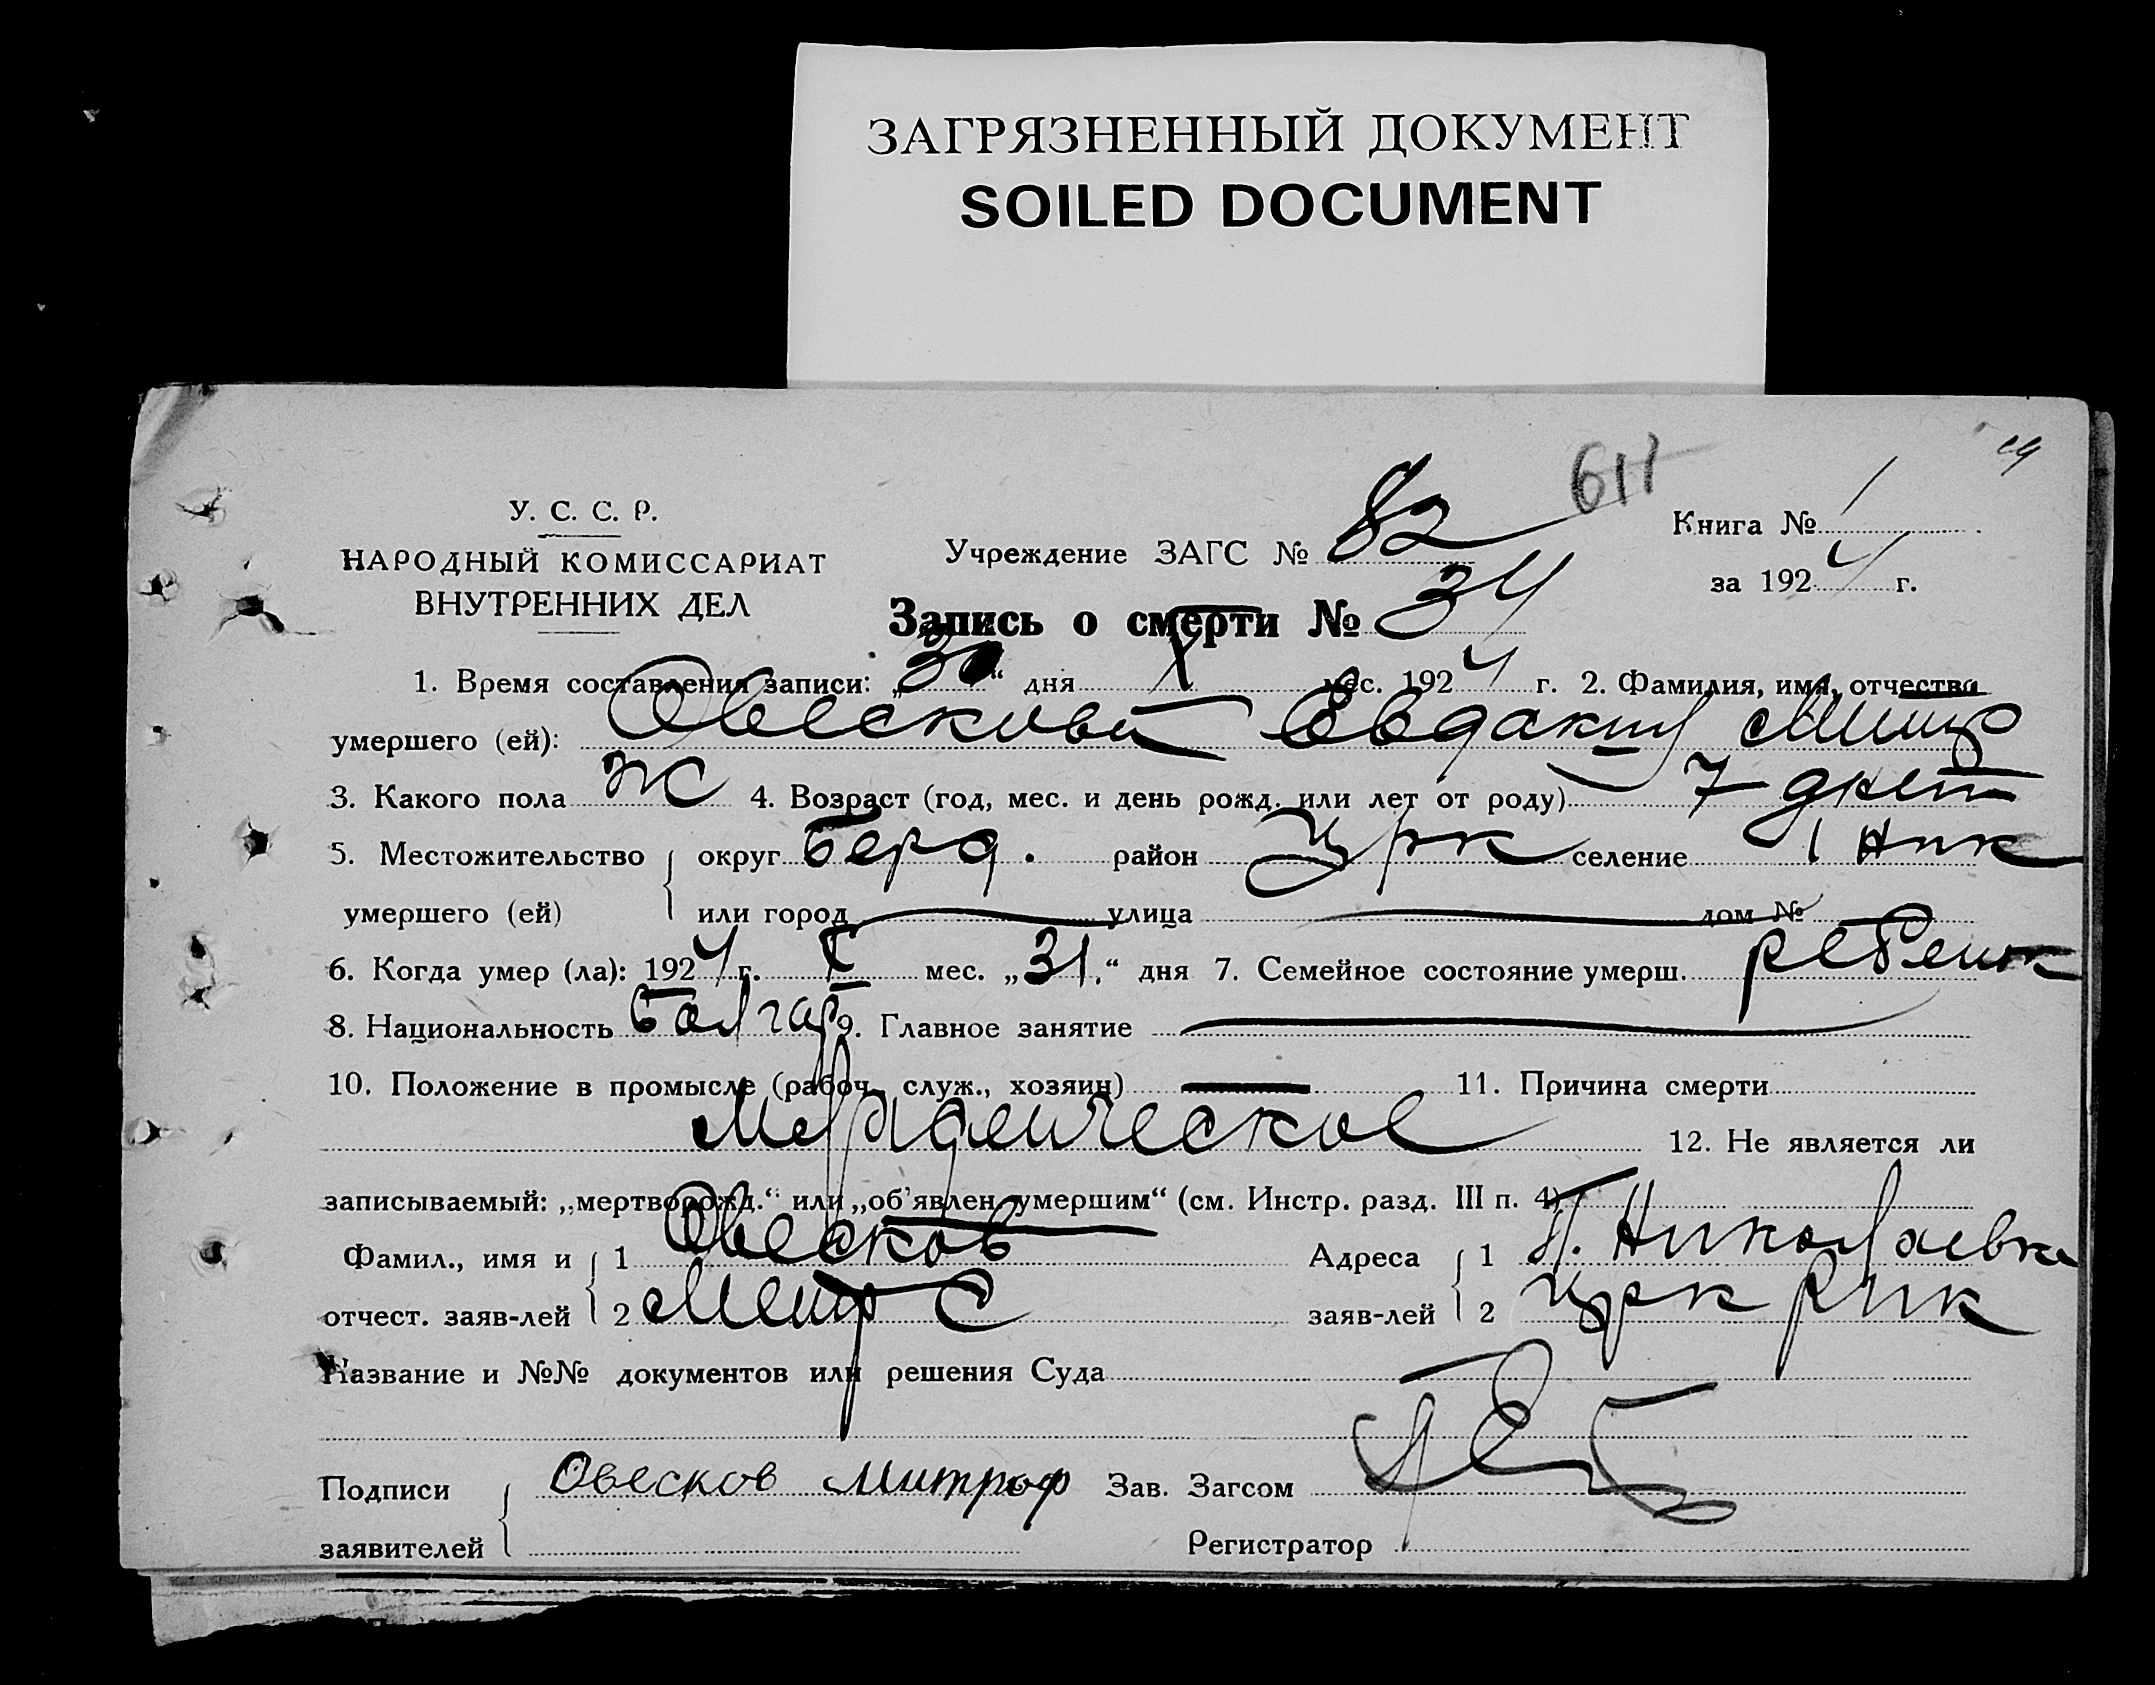 ЗАГРЯЗНЕННЫЙ ДОКУМЕНТ
SOILED DOCUMENT
611
У. С. С. Р.
НАРОДНЫЙ КОМИССАРИАТ
ВНУТРЕННИХ ДЕЛ
Учреждение ЗАГС № 82
Книга № 1
за 1924 г.
Запись о смерти № 34
1. Время составления записи: „ “ дня X мес. 1924 г. 2. Фамилия, имя, отчество
умершего (ей): Овескова Евдакия Митр
3. Какого пола Ж 4. Возраст (год, мес. и день рожд. или лет от роду) 7 дней
5. Местожительство округ Берд. район Црк селение 1 Ник
умершего (ей) или город улица дом №
6. Когда умер (ла): 1924 г. X мес. „31.“ дня 7. Семейное состояние умерш. ребенок
8. Национальность болгар 9. Главное занятие
10. Положение в промысле (рабоч., служ., хозяин) 11. Причина смерти
Младенческое 12. Не является ли
записываемый: „мертворожд.“ или „об'явлен умершим“ (см. Инстр. разд. III п. 4)
Фамил., имя и 1 Овесков Адреса 1 П. Николаевка
отчест. заяв-лей 2 Митр С заяв-лей 2 Црк Рик
Название и №№ документов или решения Суда
Подписи Овесков Митроф Зав. Загсом
заявителей Регистратор